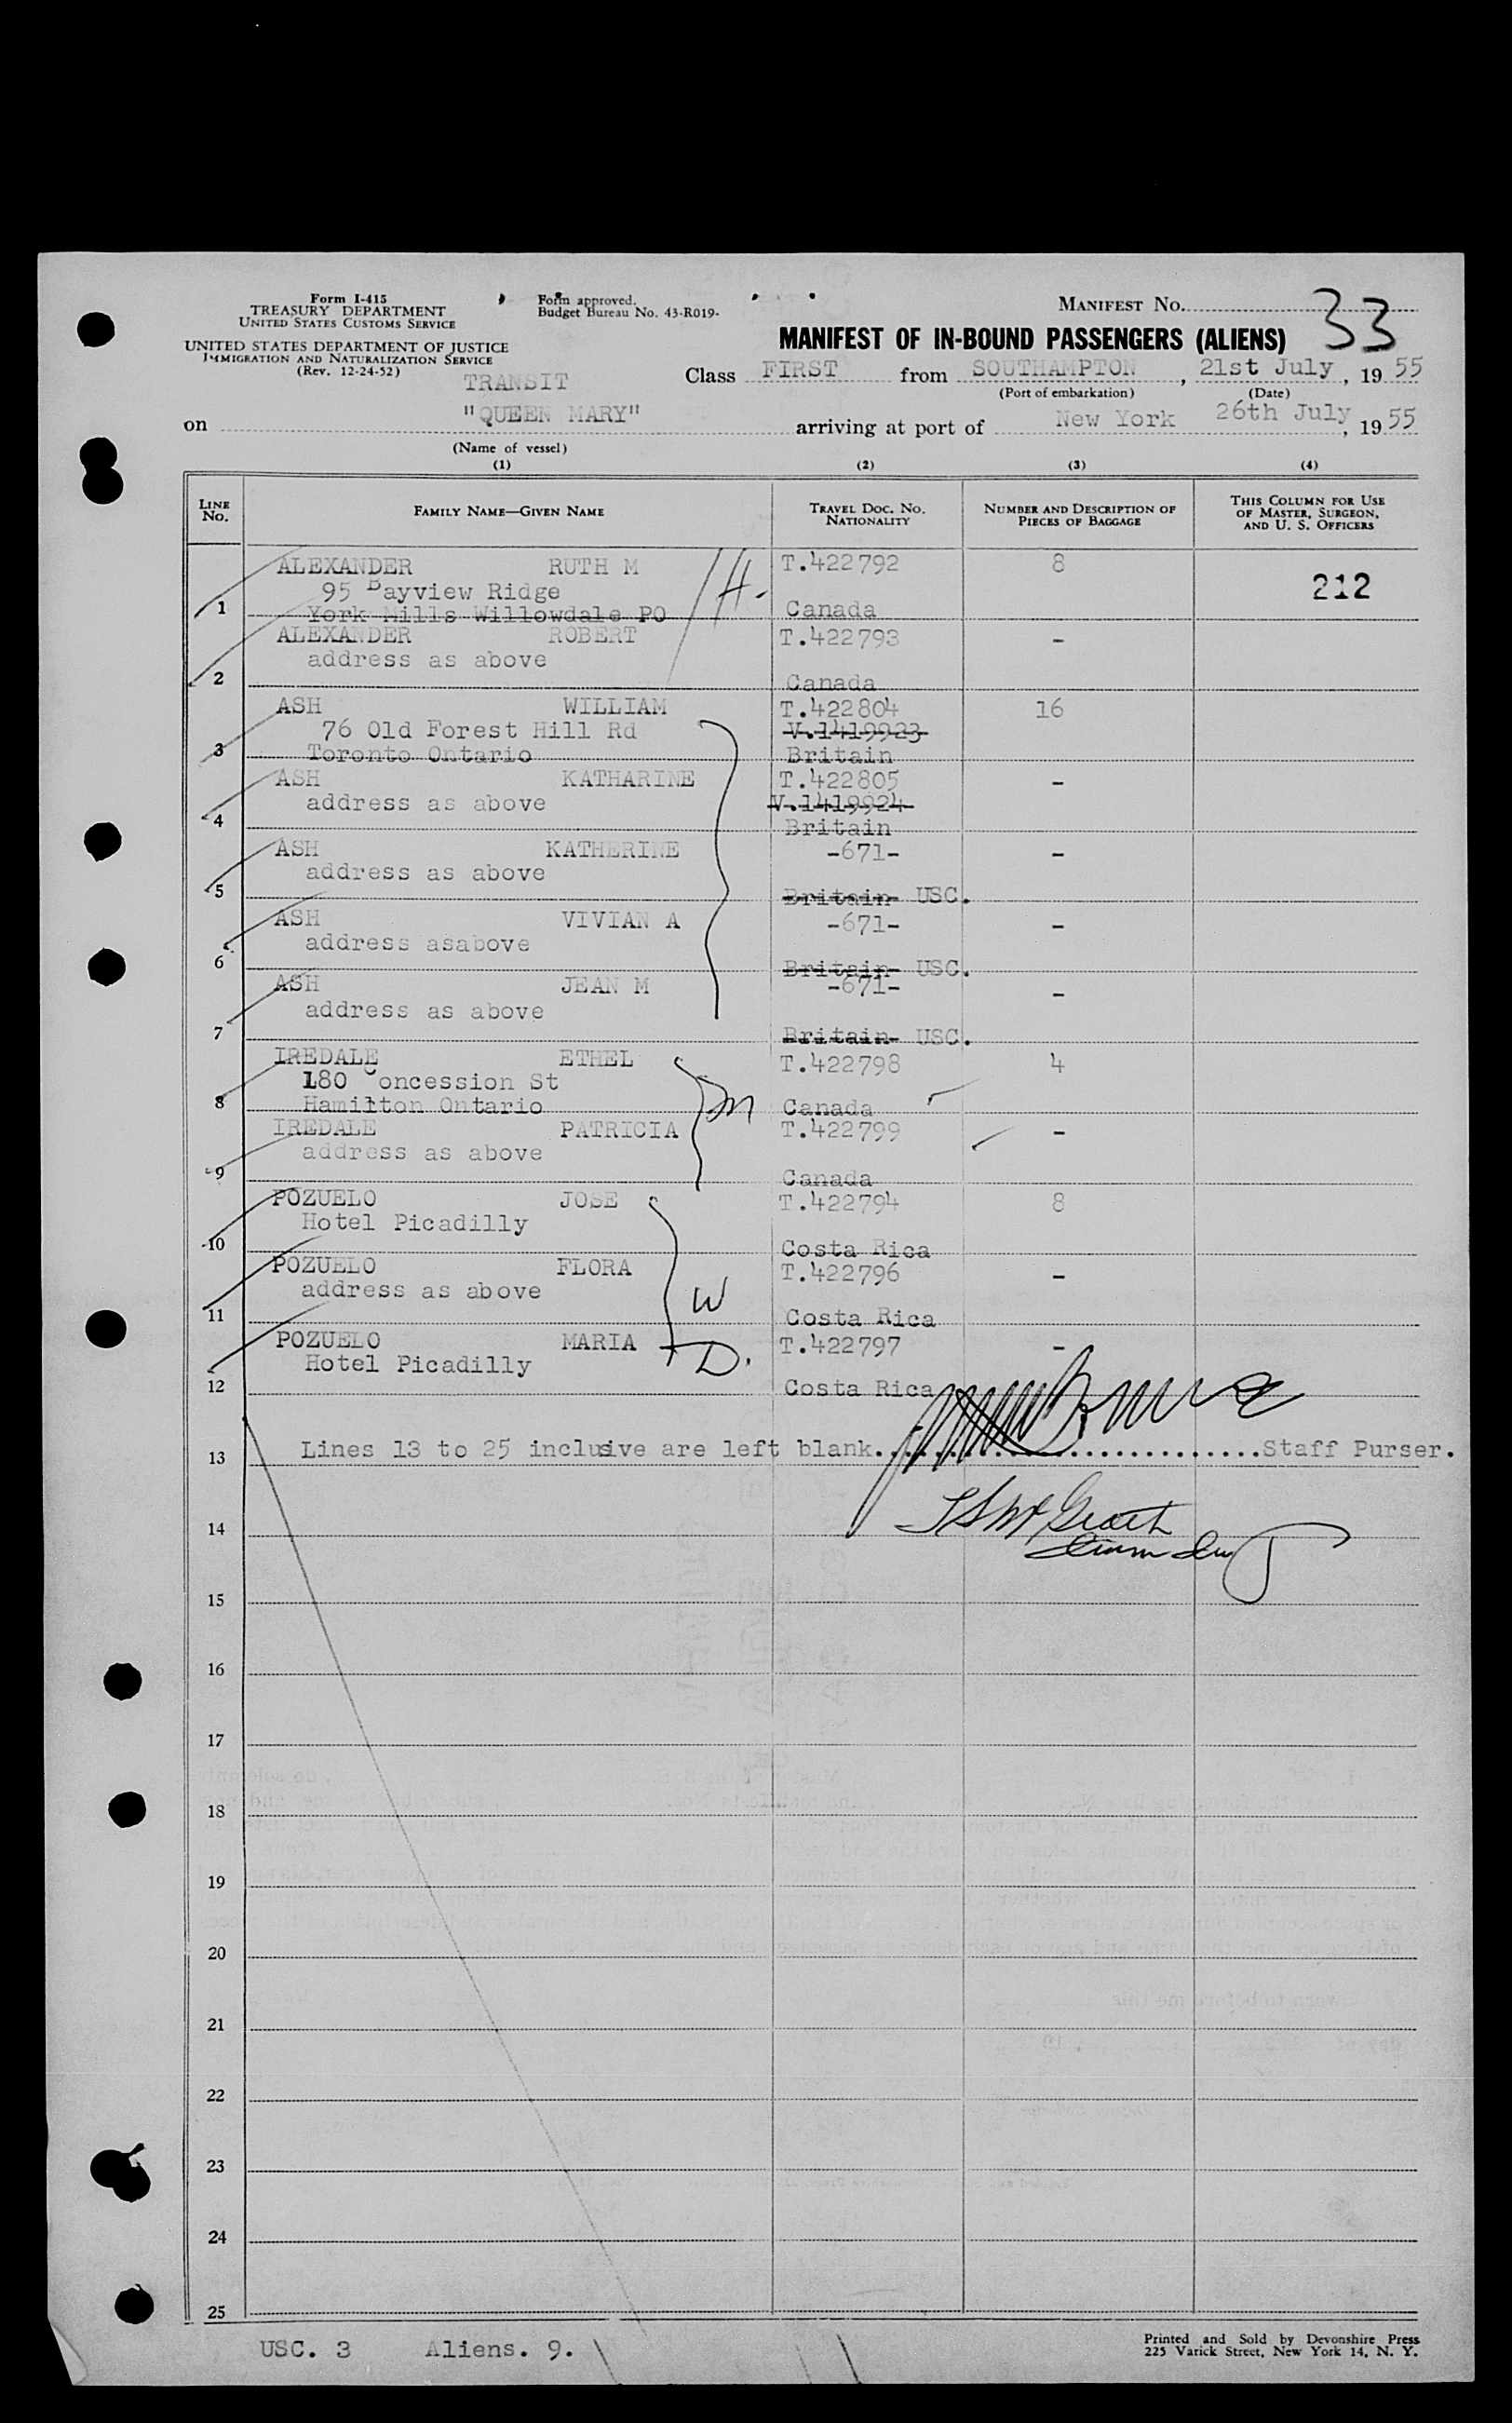 Form I-415
TREASURY DEPARTMENT
UNITED STATES CUSTOMS SERVICE
UNITED STATES DEPARTMENT OF JUSTICE
IMMIGRATION AND NATURALIZATION SERVICE
(Rev. 12-24-52)
Form approved.
Budget Bureau No. 43-R019-
MANIFEST NO. 33
MANIFEST OF IN-BOUND PASSENGERS (ALIENS)
TRANSIT
Class FIRST from SOUTHAMPTON, 21st July, 19 55
(Port of embarkation) (Date)
on "QUEEN MARY" arriving at port of New York 26th July, 19 55
(Name of vessel)
(1) (2) (3) (4)
LINE NO. FAMILY NAME—GIVEN NAME TRAVEL DOC. NO. NATIONALITY NUMBER AND DESCRIPTION OF PIECES OF BAGGAGE THIS COLUMN FOR USE OF MASTER, SURGEON, AND U. S. OFFICERS
ALEXANDER RUTH M T.422792 8
95 Bayview Ridge H. 212
1 York Mills Willowdale PO Canada
ALEXANDER ROBERT T.422793 -
address as above
2 Canada
ASH WILLIAM T.422804 16
76 Old Forest Hill Rd V.1419923
3 Toronto Ontario Britain
ASH KATHARINE T.422805 -
address as above V.1419924
4 Britain
ASH KATHERINE -671- -
address as above
5 Britain USC.
ASH VIVIAN A -671- -
address asabove
6 Britain USC.
ASH JEAN M -671- -
address as above
7 Britain USC.
IREDALE ETHEL T.422798 4
180 Concession St
8 Hamilton Ontario M Canada
IREDALE PATRICIA T.422799 -
address as above
9 Canada
POZUELO JOSE T.422794 8
Hotel Picadilly
10 Costa Rica
POZUELO FLORA T.422796 -
address as above W
11 Costa Rica
POZUELO MARIA D. T.422797 -
Hotel Picadilly
12 Costa Rica
13 Lines 13 to 25 inclusive are left blank. Staff Purser.
14
15
16
17
18
19
20
21
22
23
24
25
USC. 3 Aliens. 9.
Printed and Sold by Devonshire Press
225 Varick Street, New York 14, N. Y.